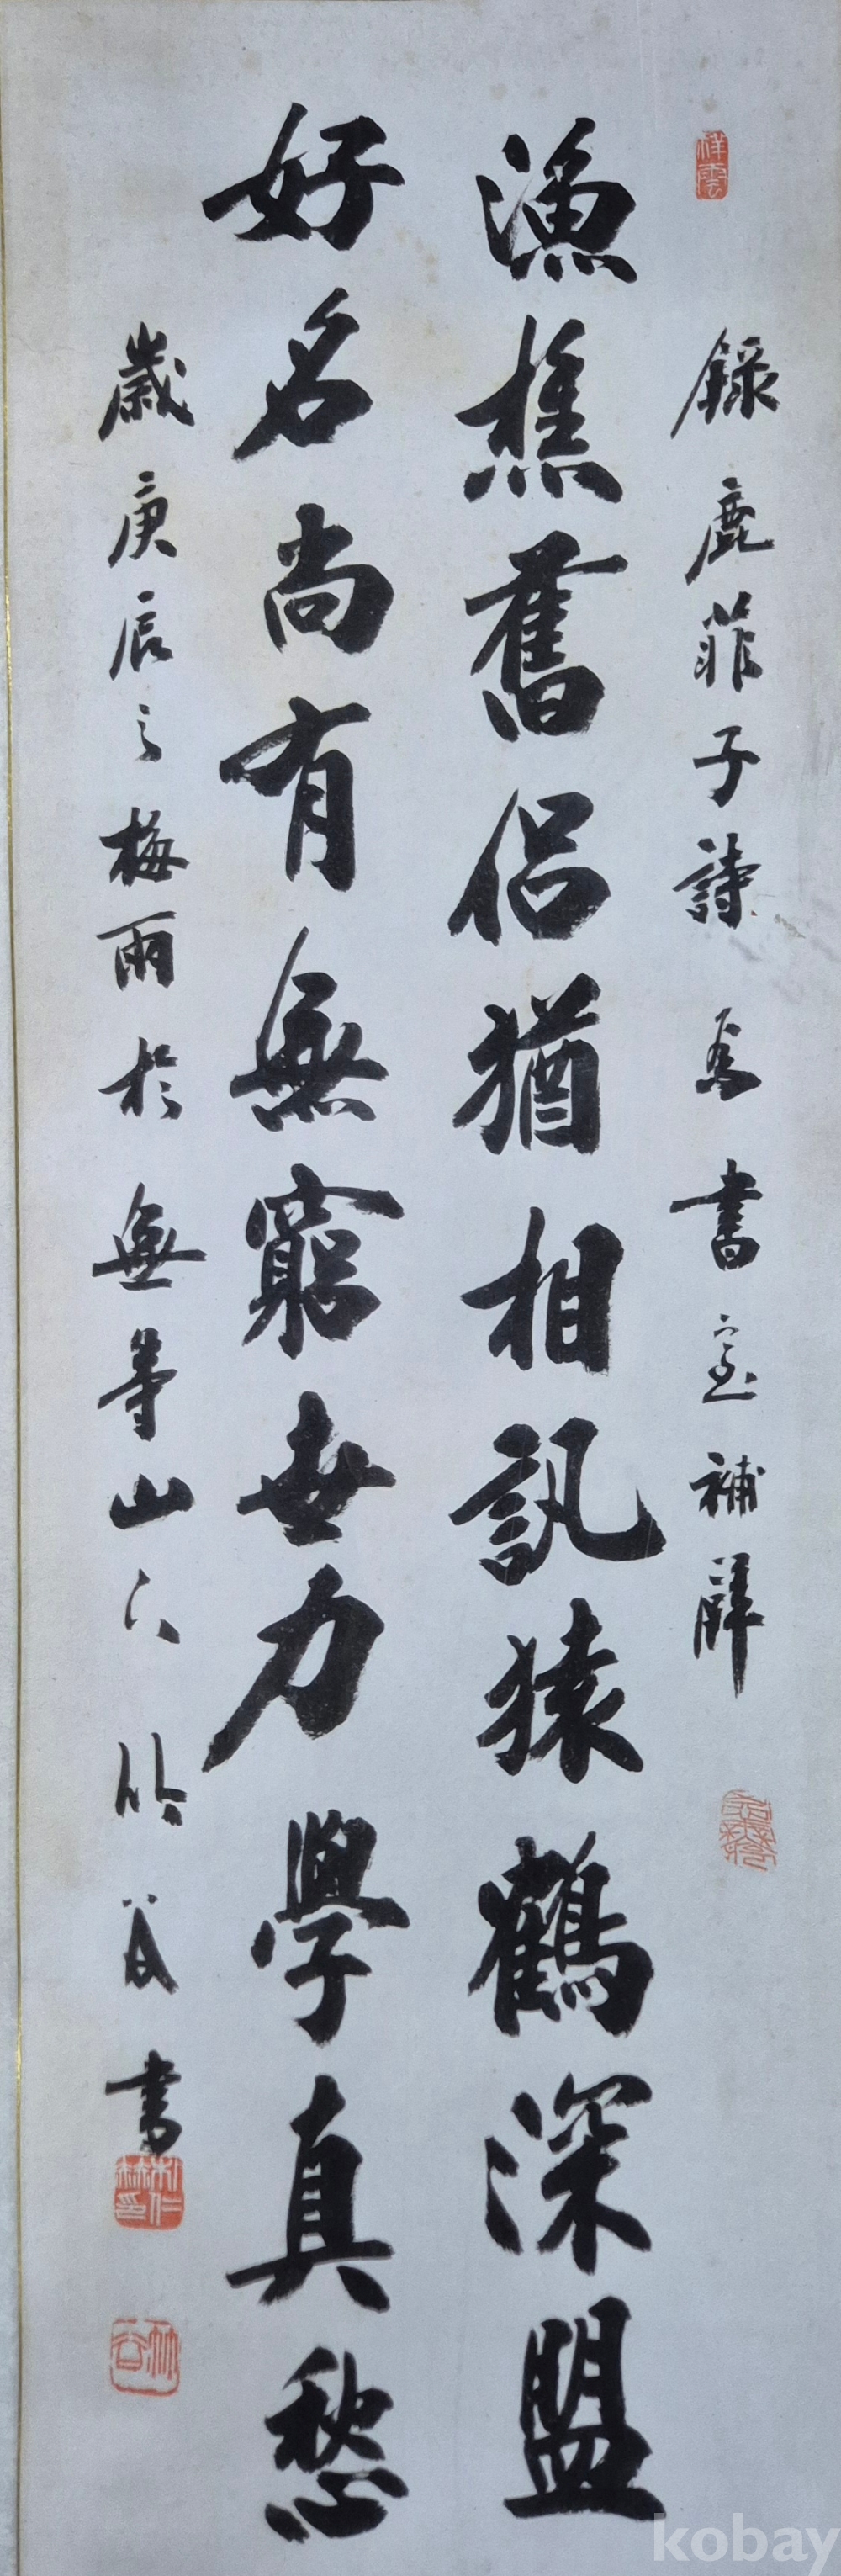 祥雲
錄鹿菲子詩 為書室補辟
漁樵舊侶猶相訊猿鶴深盟
好名尚有無窮世力學真愁
歲庚辰之梅雨於無等山下 竹農書
kobay